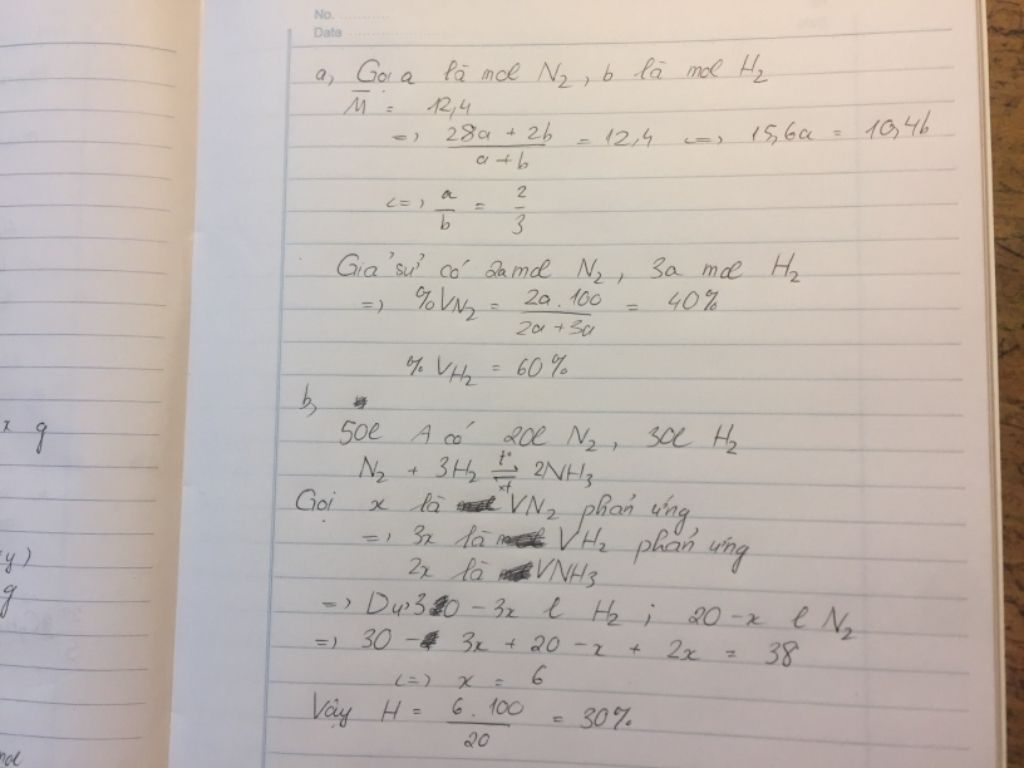 No. ............
Date ............
a, Gọi a là mol N₂, b là mol H₂
M̄ = 12,4
=> (28a + 2b)/(a + b) = 12,4 <=> 15,6a = 10,4b
<=> a/b = 2/3
Giả sử có 2a mol N₂, 3a mol H₂
=> %VN₂ = (2a . 100)/(2a + 3a) = 40%
% VH₂ = 60%
b,
50l A có 20l N₂, 30l H₂
x g
N₂ + 3H₂ ⇌ (t°, xt) 2NH₃
Gọi x là VN₂ phản ứng
=> 3x là VH₂ phản ứng
y)
2x là VNH₃
g
=> Dư 30 - 3x l H₂ ; 20 - x l N₂
=> 30 - 3x + 20 - x + 2x = 38
<=> x = 6
Vậy H = (6 . 100)/20 = 30%